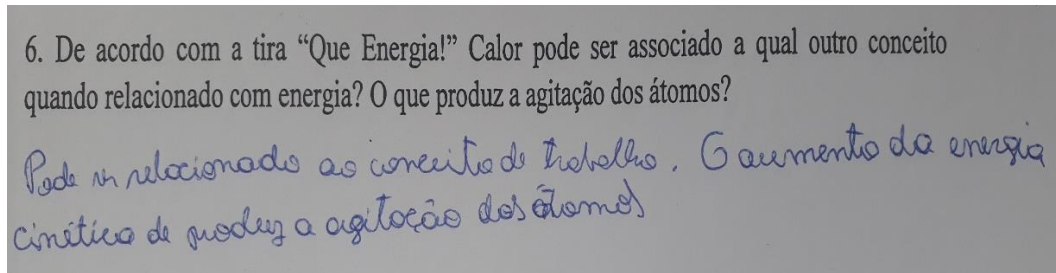 6. De acordo com a tira “Que Energia!” Calor pode ser associado a qual outro conceito
quando relacionado com energia? O que produz a agitação dos átomos?
Pode ser relacionado ao conceito de trabalho. O aumento da energia
cinética de produz a agitação dos átomos